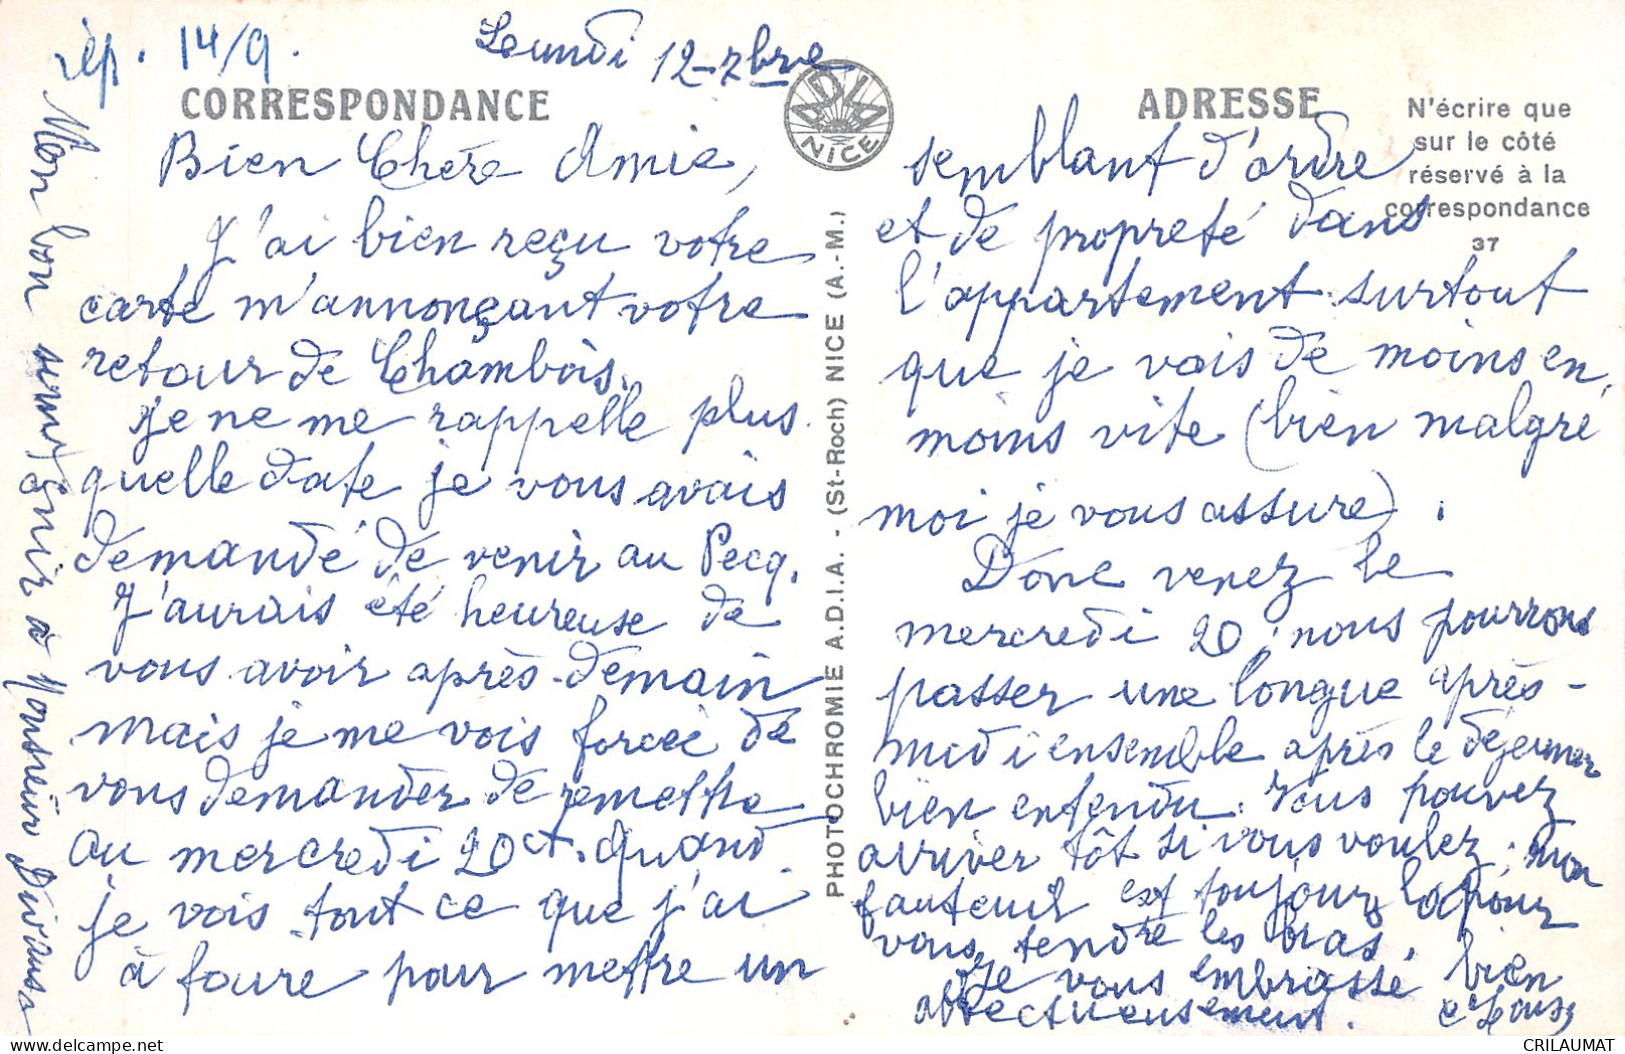 rép. 14/9.
Lundi 12-7bre
CORRESPONDANCE
Bien Chère Amie,
J'ai bien reçu votre
carte m'annonçant votre
retour de Chambois.
Je ne me rappelle plus
quelle date je vous avais
demandé de venir au Pecq.
J'aurais été heureuse de
vous avoir après-demain
mais je me vois forcée de
vous demander de remettre
au mercredi 20 ct. Quand
je vois tout ce que j'ai
à faire pour mettre un
Mon bon souvenir à Monsieur
ADIA
NICE
PHOTOCHROMIE A.D.I.A. - (St-Roch) NICE (A.-M.)
ADRESSE
N'écrire que
sur le côté
réservé à la
correspondance
37
semblant d'ordre
et de propreté dans
l'appartement surtout
que je vais de moins en
moins vite (bien malgré
moi je vous assure).
Donc venez le
mercredi 20, nous pourrons
passer une longue après-
midi ensemble après le déjeuner
bien entendu. Vous pouvez
arriver tôt si vous voulez ; mon
fauteuil est toujours là pour
vous tendre les bras.
Je vous embrasse bien
affectueusement.
CRILAUMAT